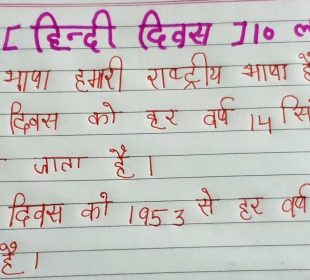 [ हिन्दी दिवस ] 10
भाषा हमारी राष्ट्रीय भाषा है
दिवस को हर वर्ष 14 सि
जाता है ।
दिवस को 1953 से हर वर्ष
है ।